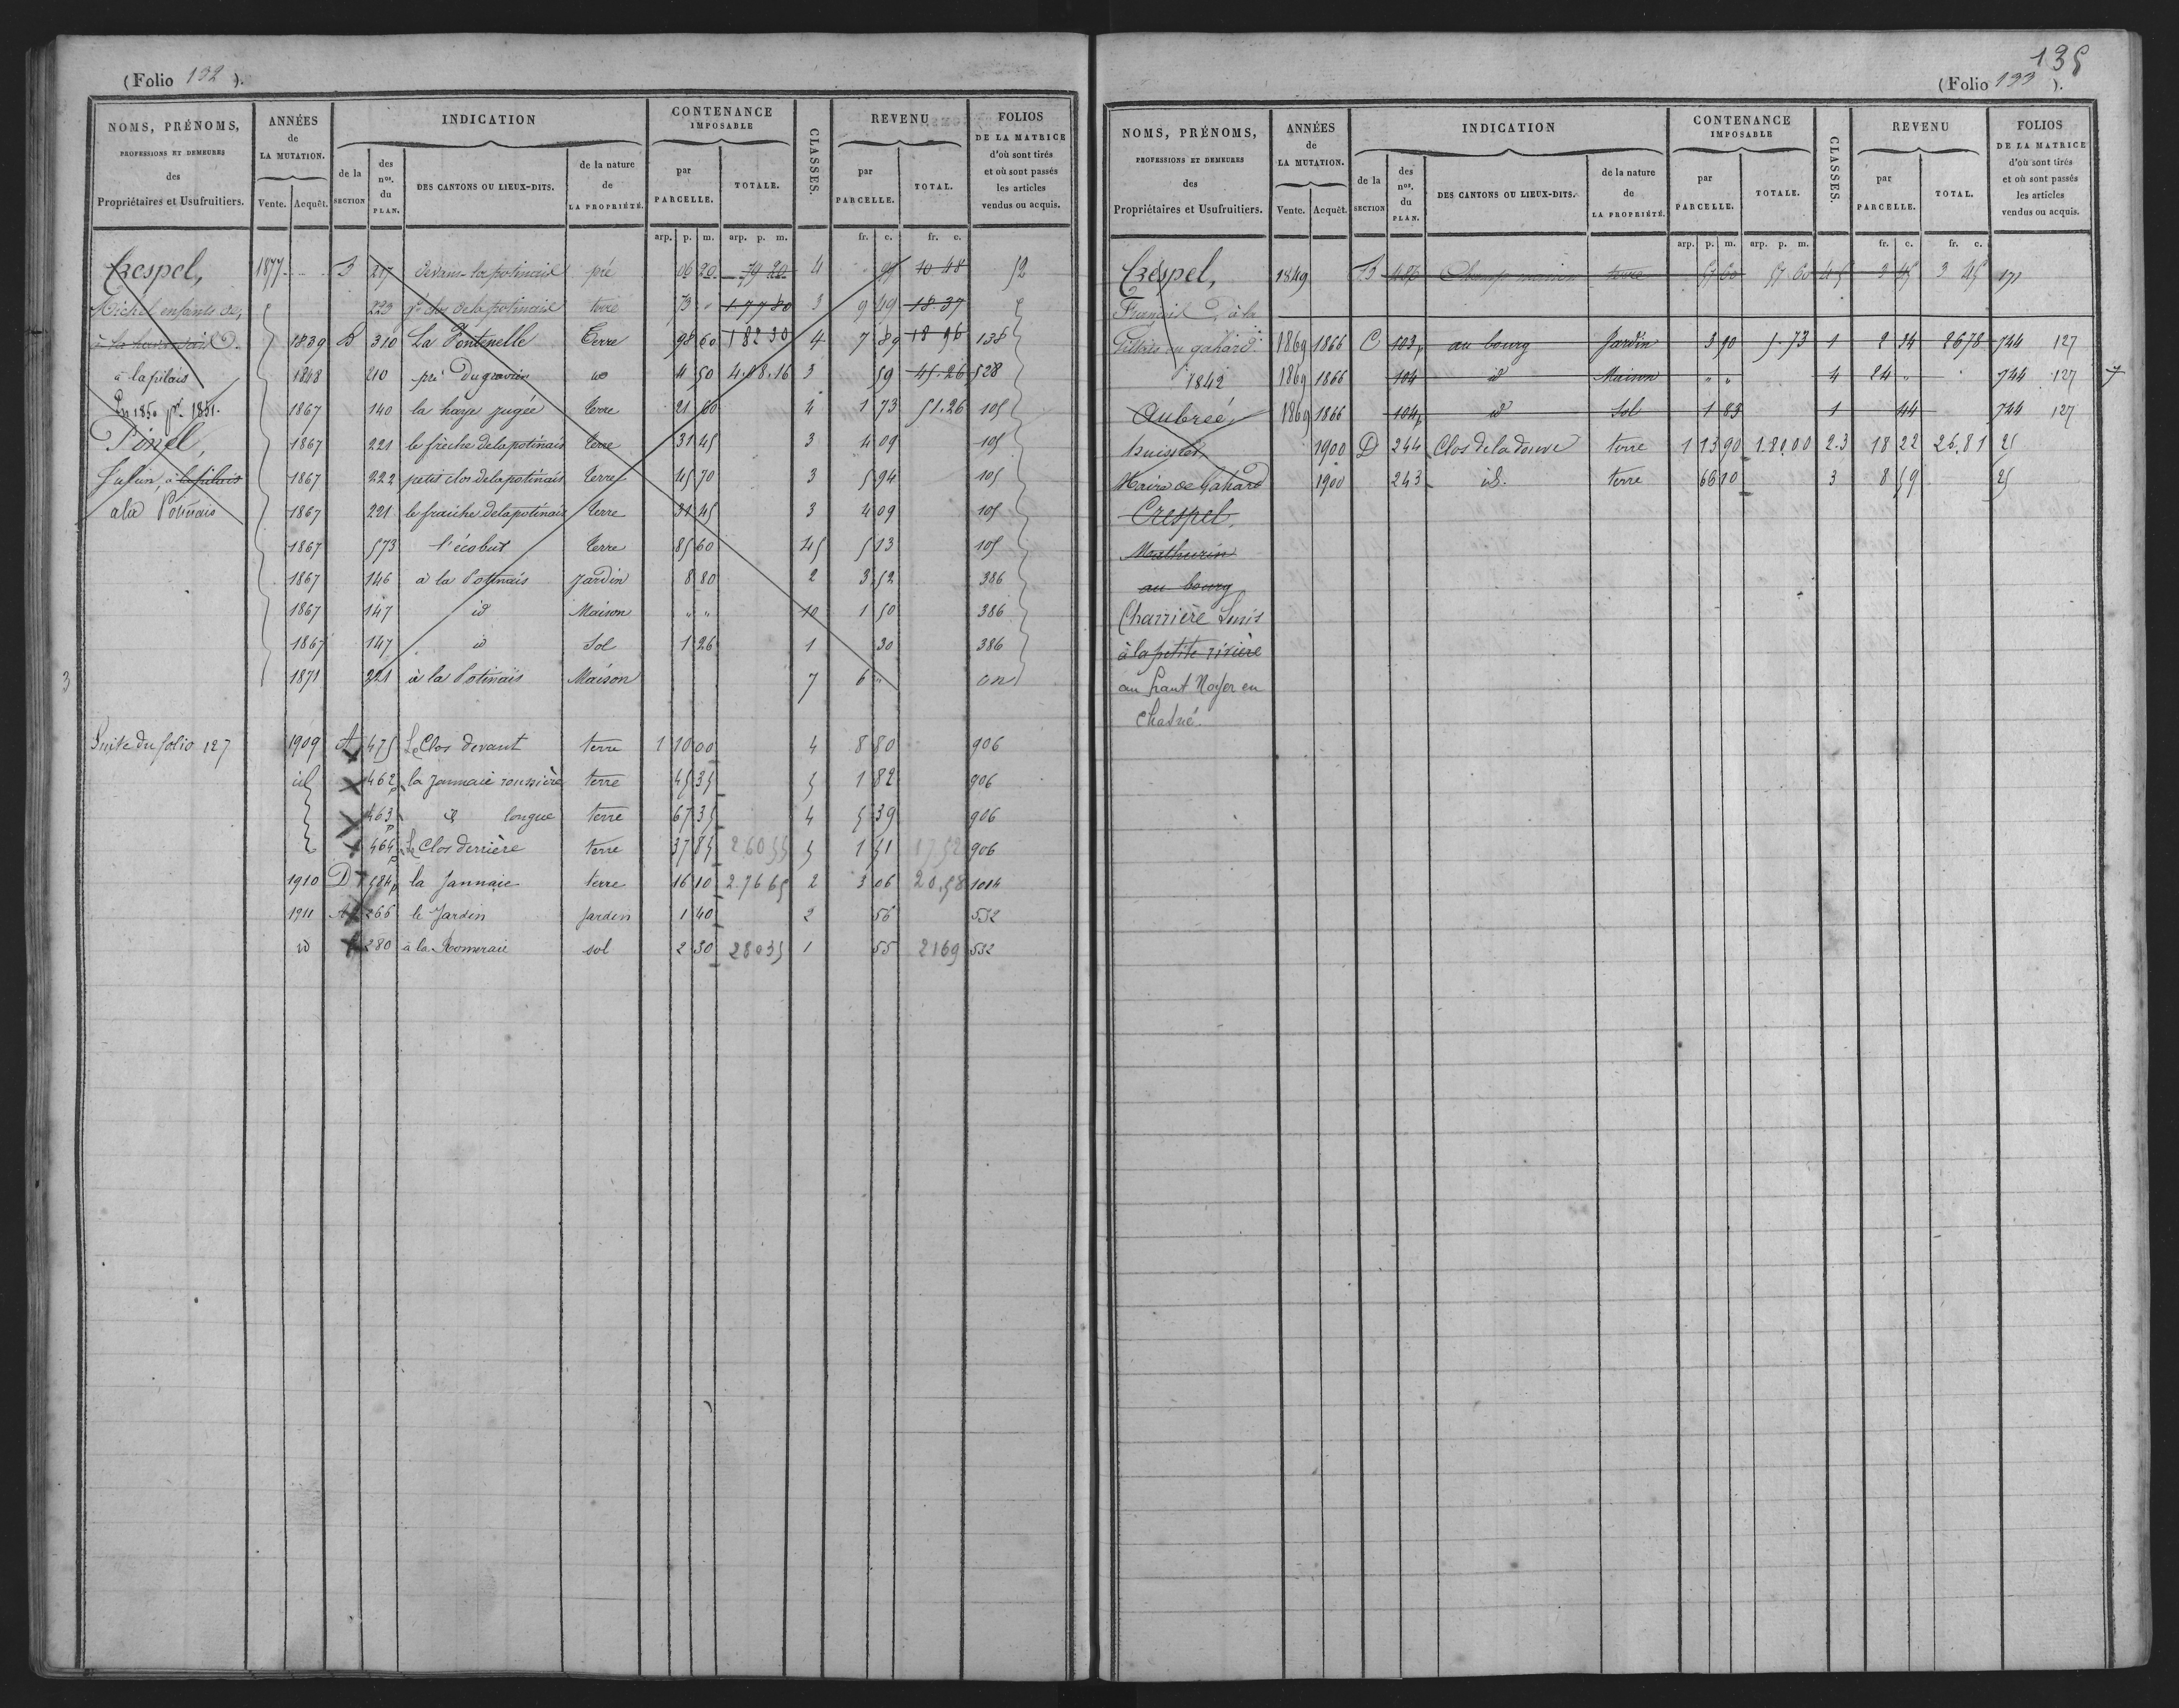 (Folio 132 ).
NOMS, PRÉNOMS, PROFESSIONS ET DEMEURES des Propriétaires et Usufruitiers.
ANNÉES de LA MUTATION. Vente. Acquêt.
INDICATION
de la SECTION
des nos. du PLAN.
DES CANTONS OU LIEUX-DITS.
de la nature de LA PROPRIÉTÉ.
CONTENANCE IMPOSABLE
par PARCELLE. TOTALE.
CLASSES.
REVENU
par PARCELLE. TOTAL.
FOLIOS DE LA MATRICE d'où sont tirés et où sont passés les articles vendus ou acquis.
arp. p. m. arp. p. m. fr. c. fr. c.
Crespel, 1877 B 217 devant la potinais pré 06 20 79 20 4 10 48 52
Michel enfants de, 223 gd clos de la potinais terre 73 " 1 77 80 3 9 49 18.37
1839 B 310 La Fontenelle Terre 98 60 1 82 30 4 7 89 18 96 138
à la pilais 1848 210 pré du gravier id 4 50 4.08.16 3 59 45.26 528
En 1850 pr 1851. 1867 140 la haye jugée terre 21 60 4 1 73 51.26 105
Pinel, 1867 221 le frèche de la potinais terre 31 45 3 4 09 105
Julien, à la pilais 1867 222 petit clos de la potinais terre 45 70 3 5 94 105
à la Potinais 1867 221 le fraiche de la potinais terre 31 45 3 4 09 105
1867 573 l'écobut terre 85 60 45 5 13 105
1867 146 à la Potinais Jardin 8 80 2 3 52 386
1867 147 id Maison " " 10 1 50 386
1867 147 id Sol 1 26 1 30 386
3 1871 221 à la Potinais Maison 7 6 " cn
Suite du folio 127 1909 A 475 Le Clos devant terre 1 10 00 4 8 80 906
id 462p la Jannaie roussière terre 45 35 5 1 82 906
463p id longue terre 67 35 4 5 39 906
464p Le Clos derrière terre 37 85 2 60 55 5 1 51 17 52 906
1910 D 584p la Jannaie terre 16 10 2.76 65 2 3 06 20.58 1014
1911 A 266 le Jardin Jardin 1 40 2 56 532
id 280 à la Romeraie sol 2 30 28035 1 55 2169 532
135
(Folio 133 ).
NOMS, PRÉNOMS, PROFESSIONS ET DEMEURES des Propriétaires et Usufruitiers.
ANNÉES de LA MUTATION. Vente. Acquêt.
INDICATION
de la SECTION
des nos. du PLAN.
DES CANTONS OU LIEUX-DITS.
de la nature de LA PROPRIÉTÉ.
CONTENANCE IMPOSABLE
par PARCELLE. TOTALE.
CLASSES.
REVENU
par PARCELLE. TOTAL.
FOLIOS DE LA MATRICE d'où sont tirés et où sont passés les articles vendus ou acquis.
arp. p. m. arp. p. m. fr. c. fr. c.
Crespel, 1849 B 486 Champ terre 57 60 57 60 45 3 45 3 45 171
François à la
en gahard. 1869 1866 C 103p au bourg Jardin 3 90 5.73 1 2 34 2678 744 127
1842 1869 1866 104 id Maison " " 4 24 " 744 127
Aubreé, 1869 1866 104p id Sol 1 83 1 44 744 127
huissier, 1900 D 244 Clos de la douve terre 1 13 90 1.80.00 2-3 18 22 26.81 25
Maire de Gahard 1900 243 id. terre 66 10 3 8 59 25
Crespel,
Mathurin
au bourg
Charrière Louis
à la petite rivière
au haut Noyer en
Chasné.